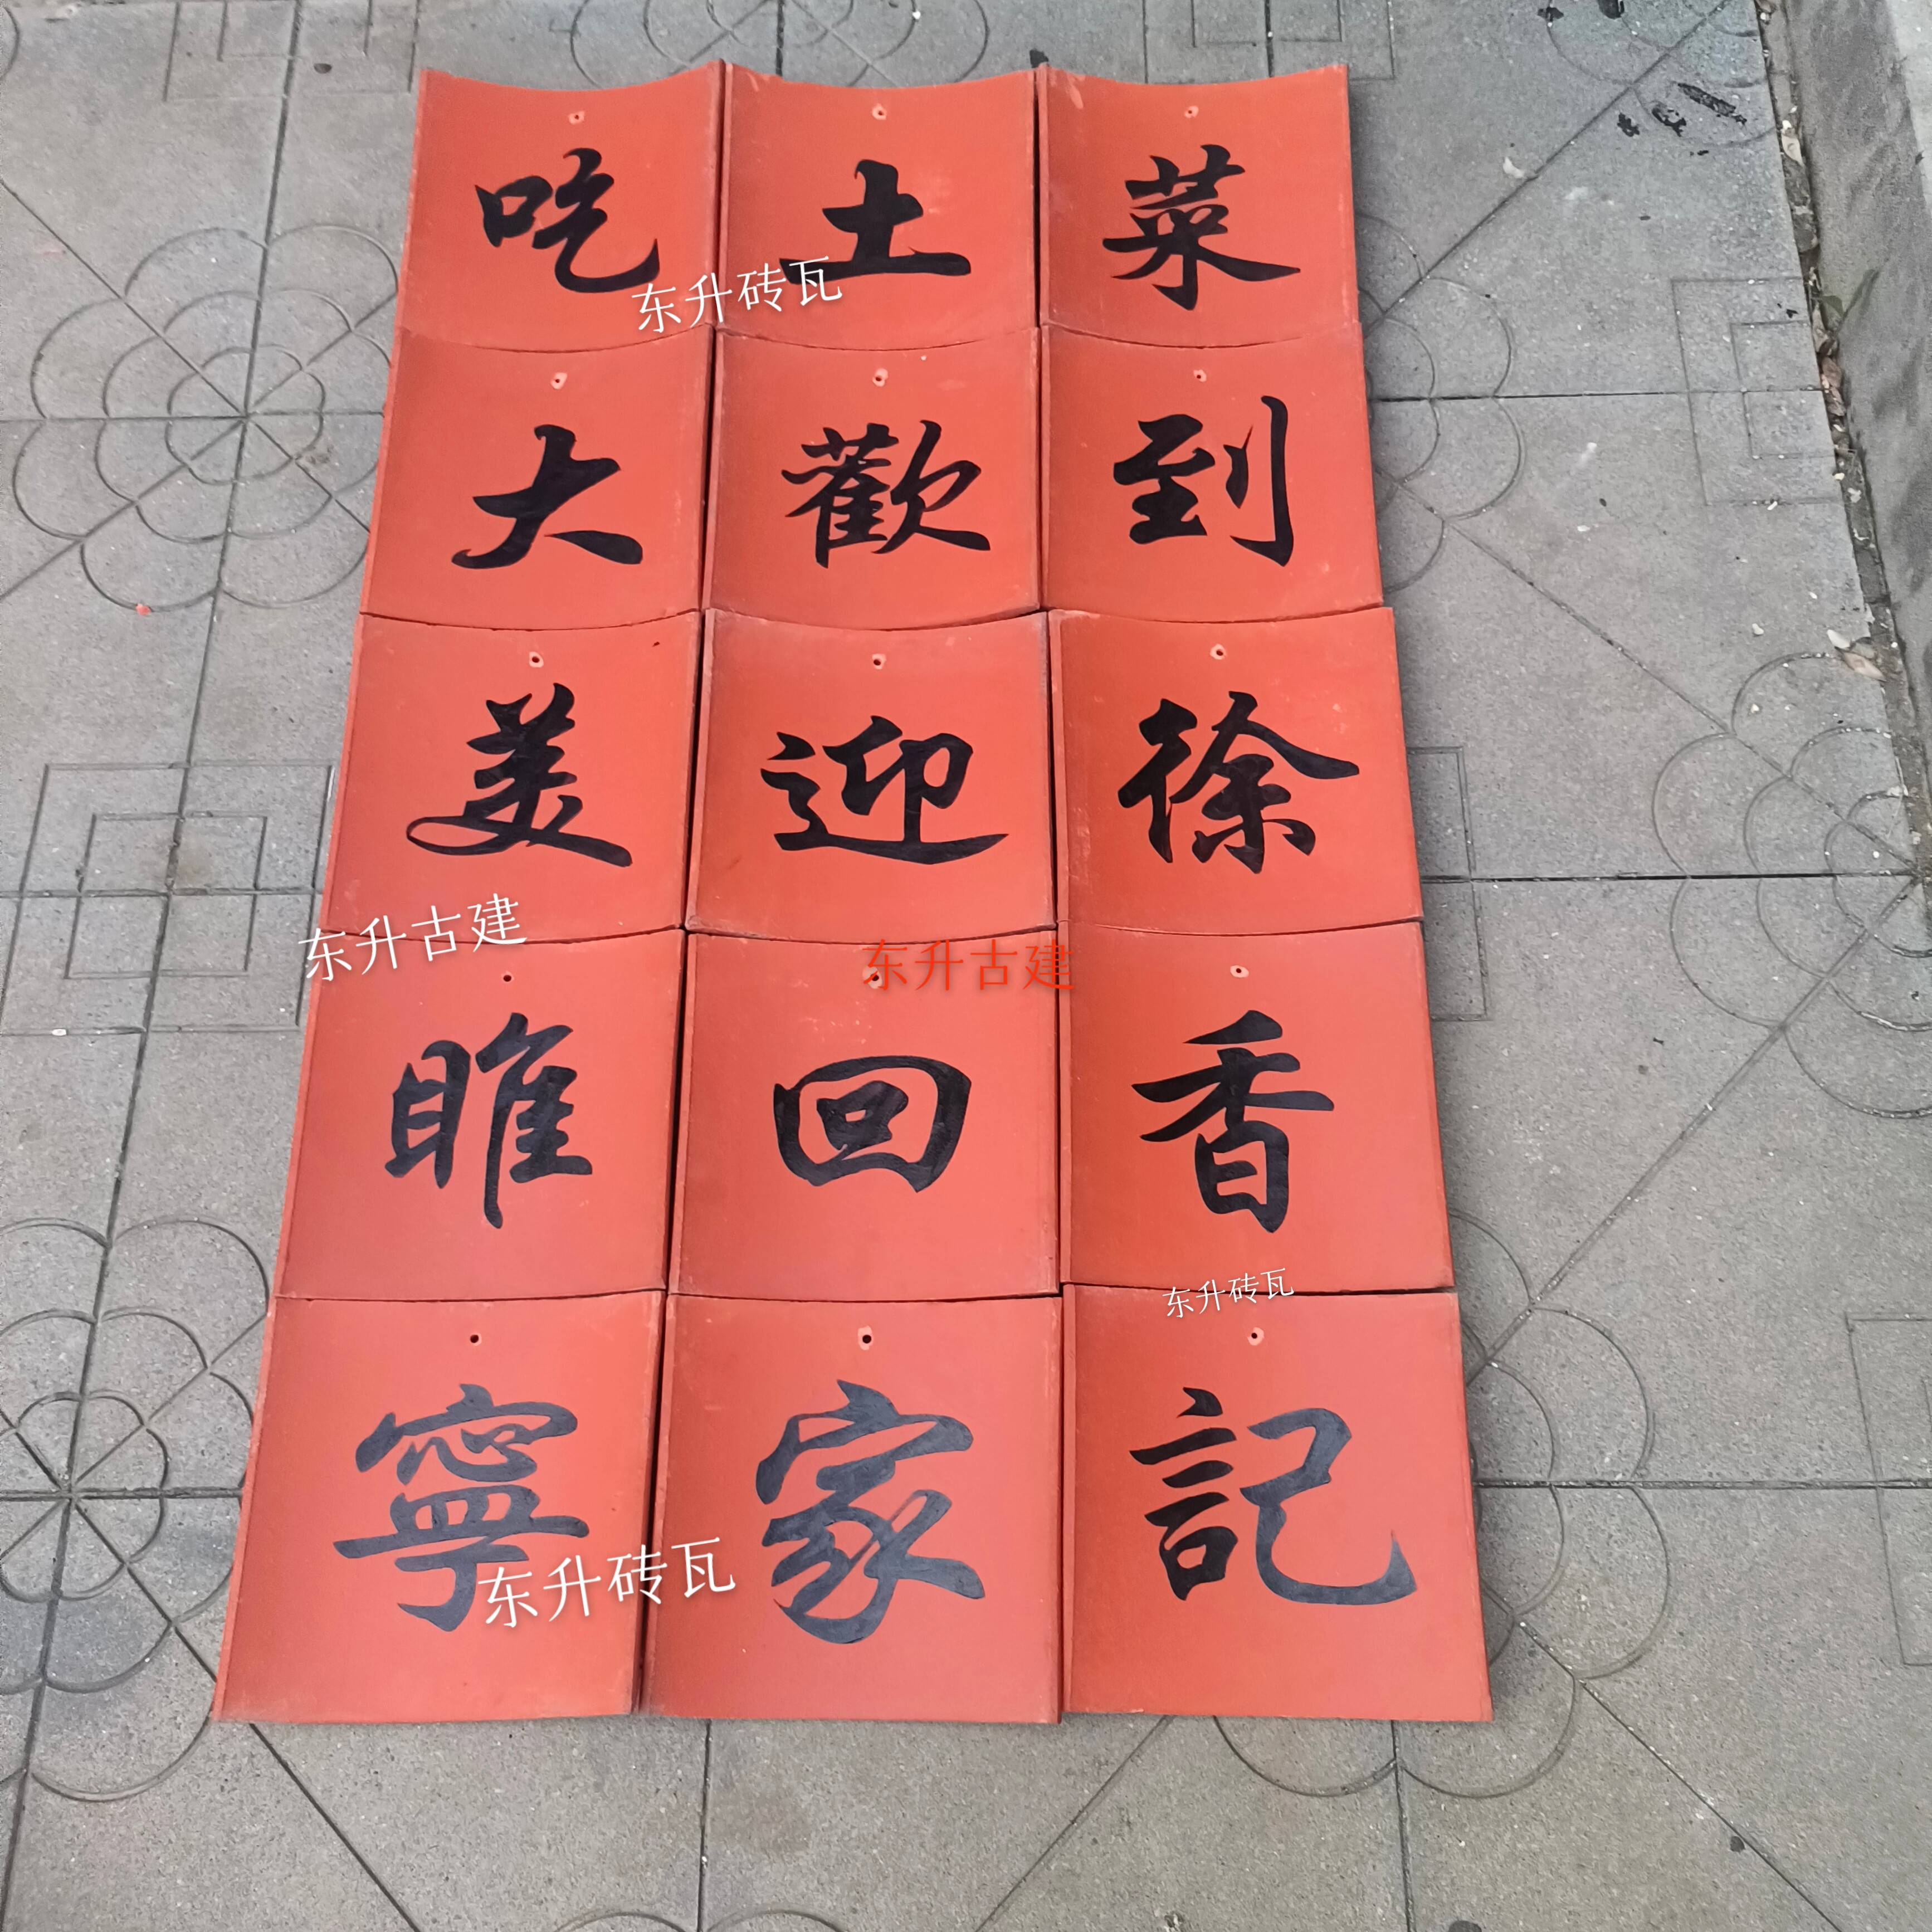 吃土菜
到徐香記
大美睢寧
歡迎回家
东升砖瓦
东升古建
东升古建
东升砖瓦
东升砖瓦